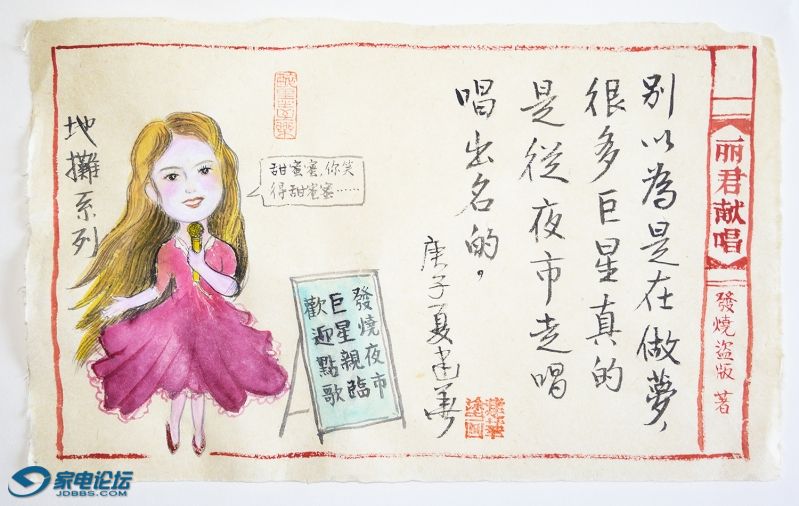 丽君献唱
發燒盜版 著
别以為是在做夢,
很多巨星真的
是從夜市走唱
唱出名的。
庚子夏
甜蜜蜜,你笑
得甜蜜蜜……
發燒夜市
巨星親臨
歡迎點歌
地攤系列
家电论坛
JDBBS.COM